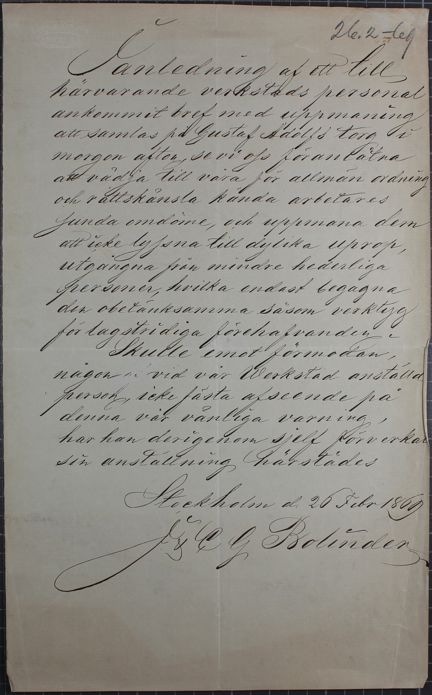 26.2-69
I anledning af ett till
härvarande verkstads personal
ankommit bref med uppmaning
att samlas på Gustaf Adolfs torg i
morgon afton, se vi oss föranlåtna
att vädja till våra för allmän ordning
och rättskänsla kända arbetares
sunda omdöme, och uppmana dem
att icke lyssna till dylika uprop,
utgångna från mindre hederliga
personer, hvilka endast begagna
den obetänksamma såsom verktyg
för lagstridiga förehafvanden.
Skulle emot förmodan,
någon vid vår Werkstad anställd
person, icke fästa afseende på
denna vår vänliga varning,
har han derigenom sjelf förverkat
sin anställning härstädes
Stockholm d. 26 Febr 1869
J & C G Bolinder